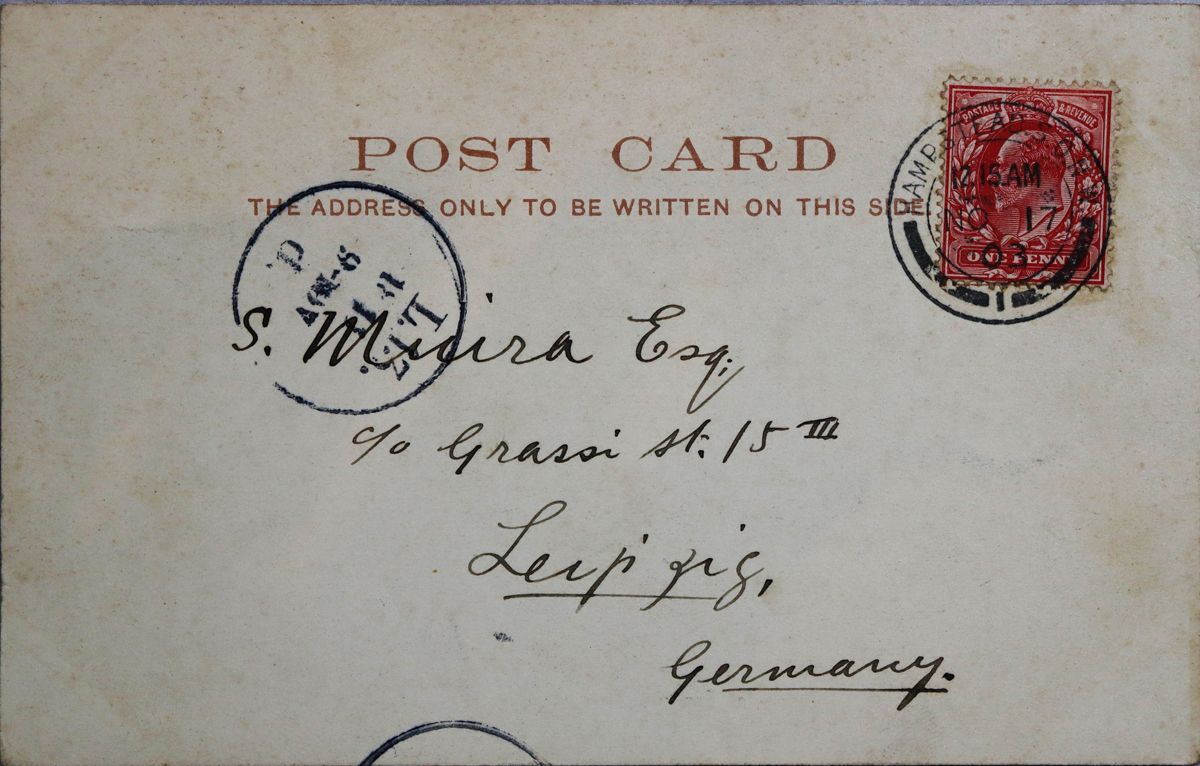 POST CARD
THE ADDRESS ONLY TO BE WRITTEN ON THIS SIDE
POSTAGE & REVENUE
ONE PENNY
12.15 AM
NO 17
03
1
S. Miura Esq.
c/o Grassi st. 15 III
Leipzig,
Germany.